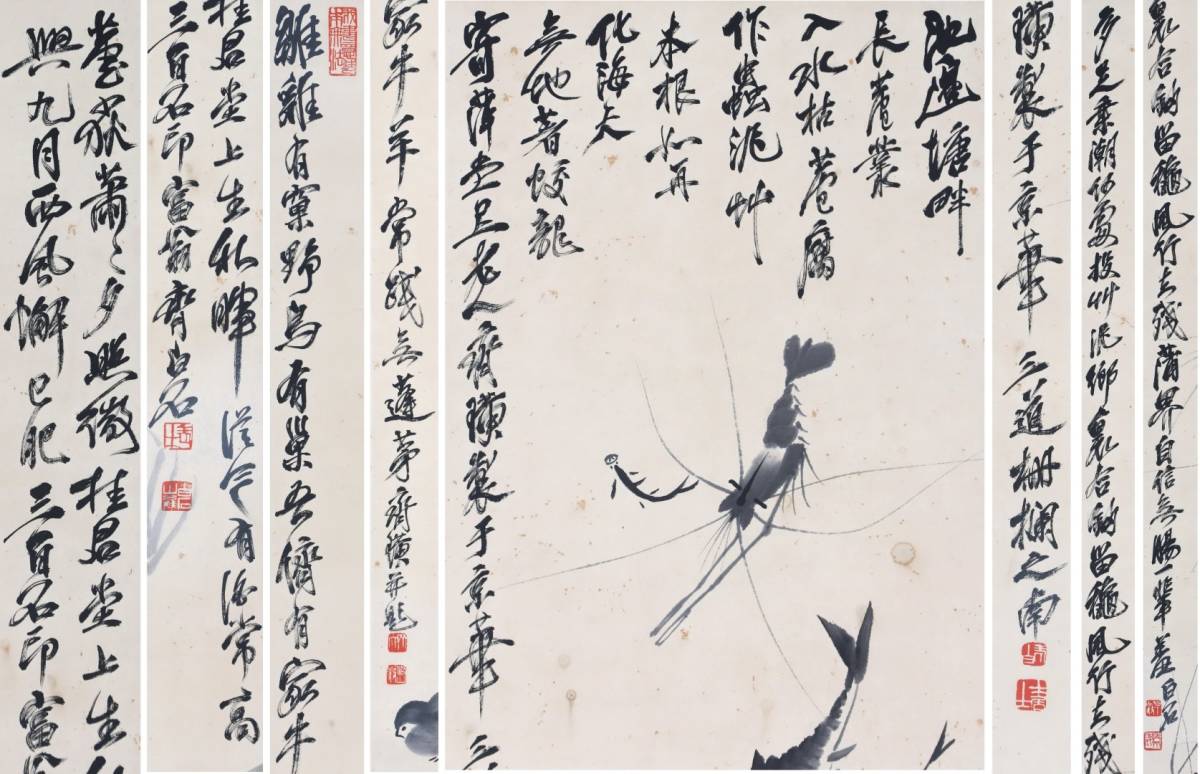 裏合鈎留龝風行去殘蒲界自信無腸一輩羞 白石
多足乘潮何處投艸泥鄉裏合鈎留龝風行去殘
璜製于京華 三道柵欄之南
池邊塘畔
長叢
入水枯腐
作泥艸
本根如再
化海大
無他著蛟龍
寄萍堂上老人齊璜製于京華 三
家牛羊常踐無蓬茅 齊璜并題
雛雞有窠野鳥有巢吾儕有家牛
桂君堂上生秋暉從今有酒常高
三百石印富翁齊白石
蘆荻蕭〻夕照微桂君堂上生
興九月西風蟹已肥三百石印富翁